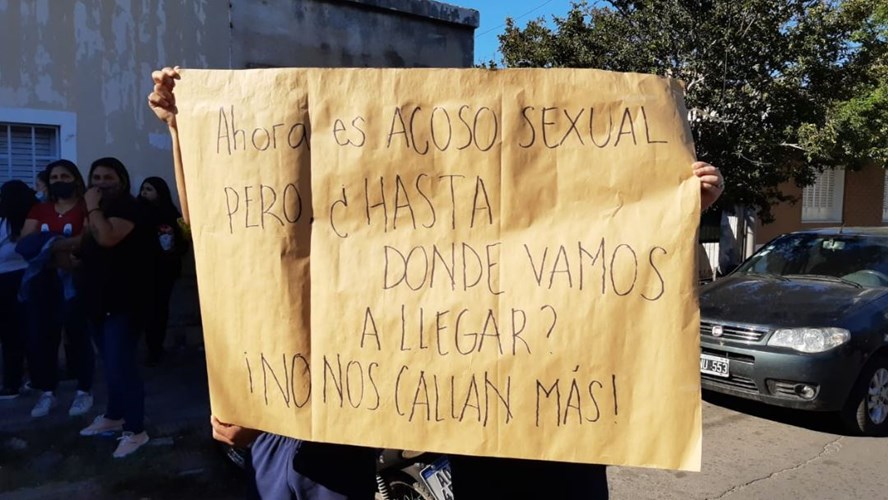 Ahora es ACOSO SEXUAL
PERO ¿HASTA
DONDE VAMOS
A LLEGAR?
¡NO NOS CALLAN MÁS!